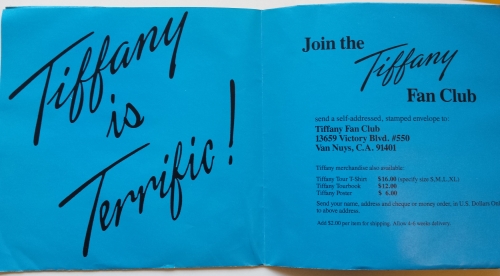 Tiffany
is
Terrific!
Join the
Tiffany
Fan Club
send a self-addressed, stamped envelope to:
Tiffany Fan Club
13659 Victory Blvd. #550
Van Nuys, C.A. 91401
Tiffany merchandise also available:
Tiffany Tour T-Shirt $16.00 (specify size S,M,L,XL)
Tiffany Tourbook $12.00
Tiffany Poster $ 6.00
Send your name, address and cheque or money order, in U.S. Dollars
to above address.
Add $2.00 per item for shipping. Allow 4-6 weeks delivery.